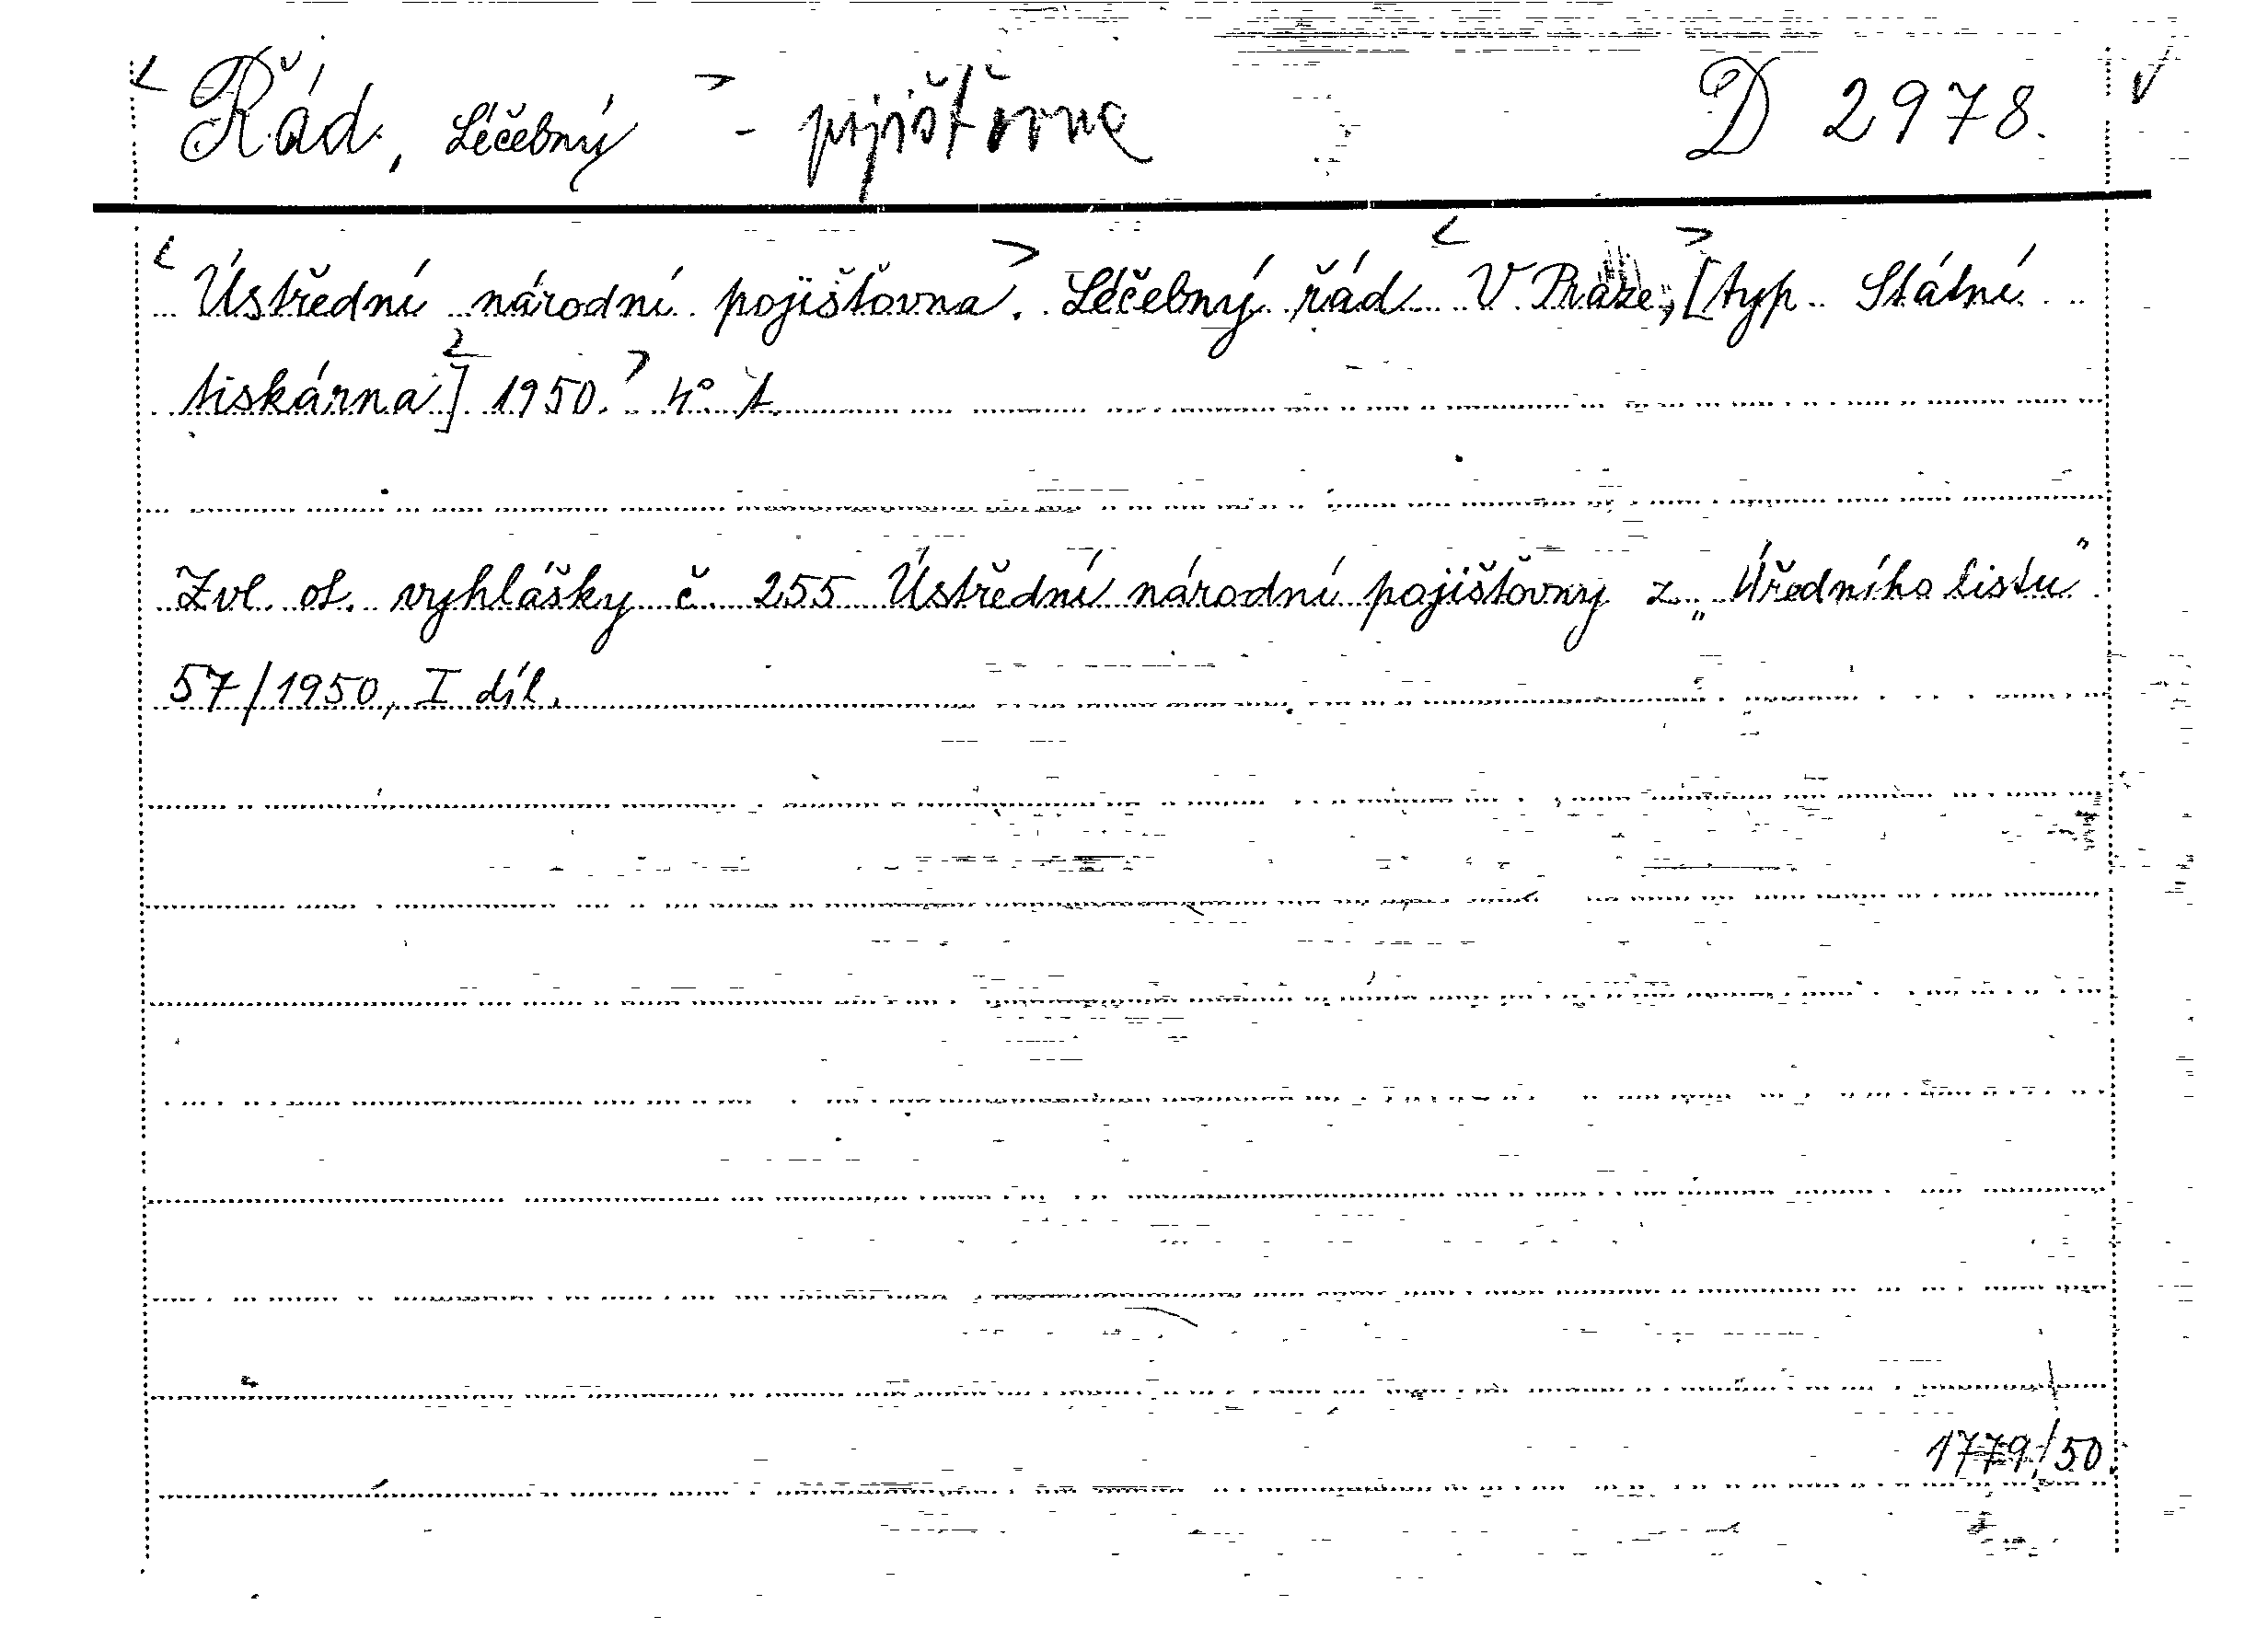 Řád, Léčebný - pojišťovna D 2978.
Ústřední národní pojišťovna. Léčebný řád V Praze, [typ. Státní
tiskárna] 1950. 4°.
Zvl. ot. vyhlášky č. 255 Ústřední národní pojišťovny z „Úředního listu"
57/1950, I díl.
1779/50.